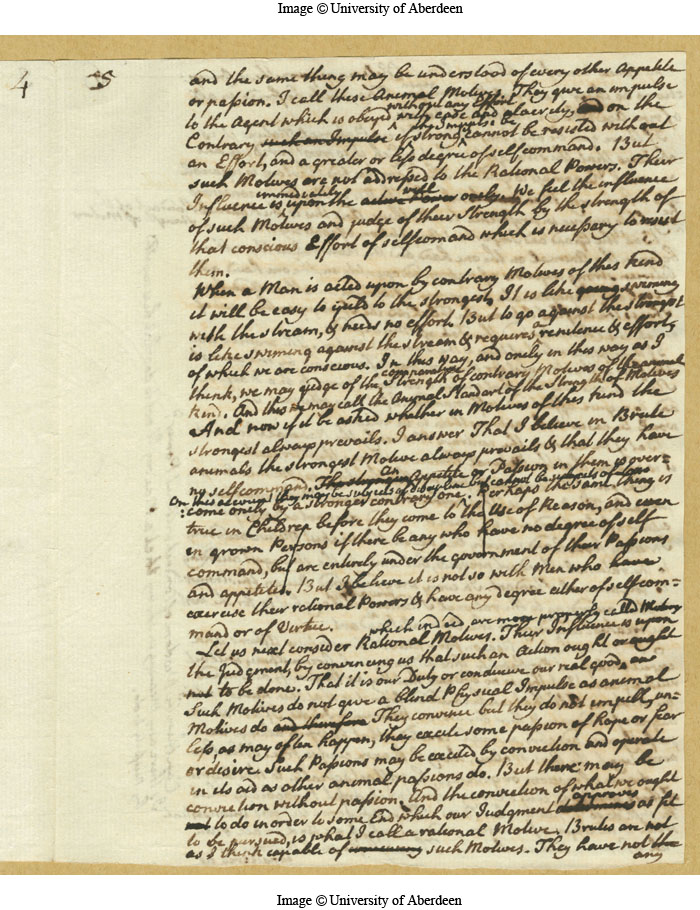 Image © University of Aberdeen
4
5
and the same thing may be understood of every other Appetite
or passion. I call these Animal Motives. They give an impulse
without any Effort
to the Agent which is obeyed with ease and placidly, and on the
the Impulse be
Contrary such an Impulse if strong cannot be resisted without
an Effort, and a greater or less degree of selfcommand. But
such Motives are not addressed to the Rational Powers. Their
immediately will
Influence is upon the active Power onely. We feel the influence
of such Motives and judge of their Strength by the strength of
that conscious Effort of selfcomand which is necessary to resist
them.
When a Man is acted upon by contrary Motives of this kind
it will be easy to yield to the strongest, It is like going swimming
with the stream, & needs no effort. But to go against the strongest
is like swiming against the stream & requires resistence & effort,
of which we are conscious. In this way, and onely in this way as I
comparative
think, we may judge of the Strength of contrary Motives of the animal
kind. And this we may call the Animal Standart of the Strength of Motives
And now if it be asked whether in Motives of this kind the
strongest always prevails. I answer That I believe in Brute
animals the strongest Motive always prevails & that they have
no selfcommand. The strongest An Appetite or Passion in them is over-
On this account they may be subjects of discipline but cannot be subjects of Law
come onely by a stronger contrary one. Perhaps the same thing is
true in Children before they come to the Use of Reason, and even
in grown Persons if there be any who have no degree of self
command, but are entirely under the government of their Passions
and appetites. But I believe it is not so with Men who have
exercise their rational Powers & have any degree either of selfcom=
mand or of Virtue.
which indeed are more properly called Motives
Let us next consider Rational Motives. Their Influence is upon
the Judgement, by convincing us that such an Action ought or ought
not to be done. That it is our Duty or conducive our real good, or
Such Motives do not give a blind Physical Impulse as animal
Motives do and therefore They convince but they do not impell, un=
less, as may often happen, they excite some passion of hope or fear
or desire. Such Passions may be excited by conviction and operate
in its aid as other animal passions do. But there may be
conviction without passion. And the conviction of what we ought
approves
not to do in order to some End which our Judgment as fit
to be pursued, is what I call a rational Motive. Brutes are not
as I think capable of such Motives. They have not the
any
Image © University of Aberdeen